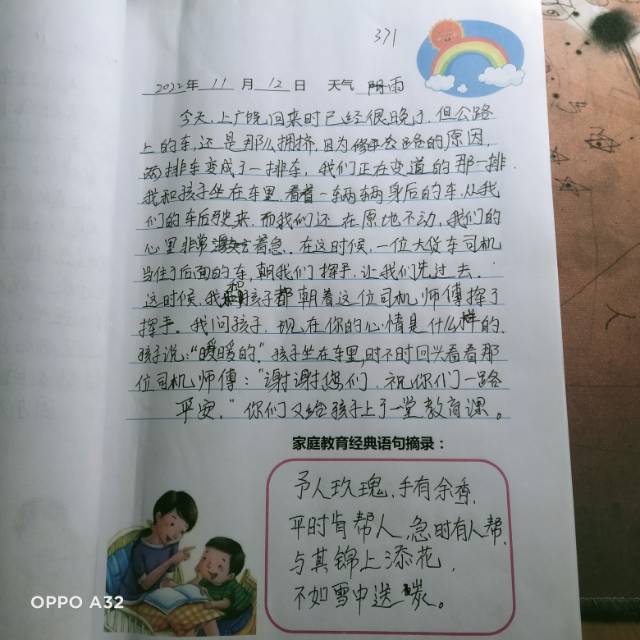 371
2022年 11 月 12 日 天气 阴雨
今天,上广饶回来时已经很晚了,但公路
上的车,还是那么拥挤,因为修车公路的原因,
两排车变成了一排车,我们正在变道的那一排.
我和孩子坐在车里,看着一辆辆身后的车,从我
们的车后驶来,而我们还在原地不动,我们的
心里非常着急,在这时候,一位大货车司机
当住了后面的车,朝我们挥手,让我们先过去.
这时候,我和孩子都朝着这位司机师傅挥了
挥手.我问孩子,现在你的心情是什么样的.
孩子说:“暖暖的”.孩子坐在车里,时不时回头看看那
位司机师傅:“谢谢您们,祝你们一路
平安.”你们又给孩子上了一堂教育课。
家庭教育经典语句摘录:
予人玫瑰,手有余香,
平时肯帮人,急时有人帮,
与其锦上添花,
不如雪中送炭。
OPPO A32